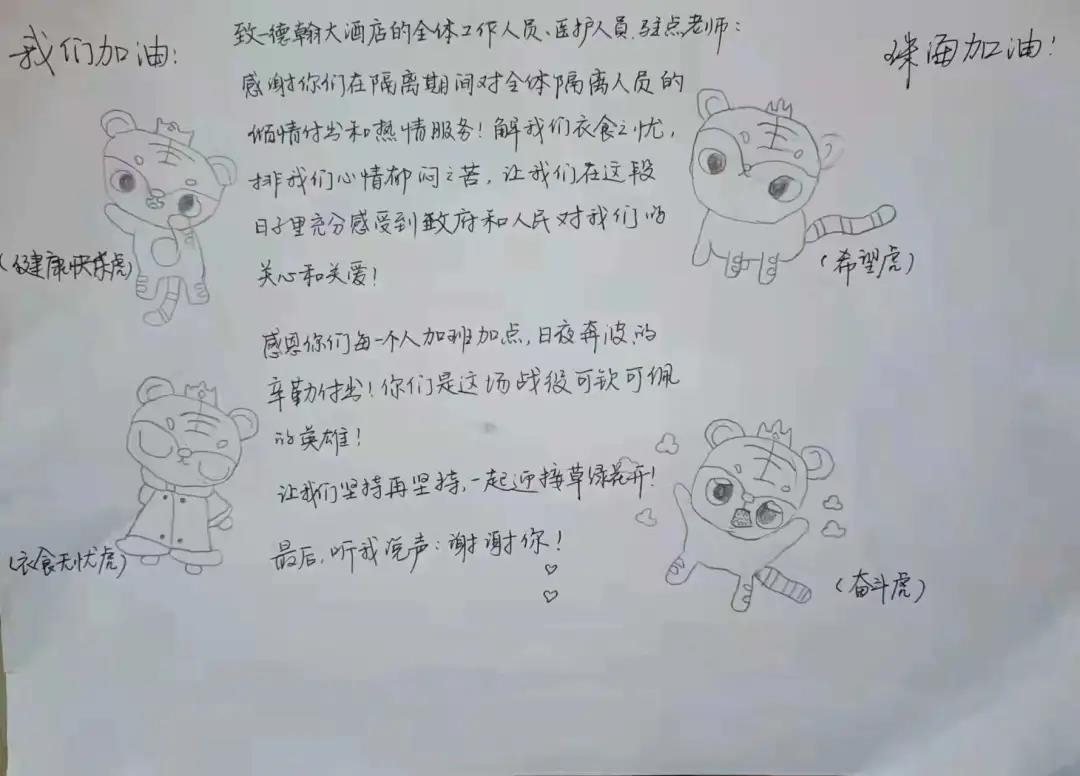 我们加油!
致一德翰大酒店的全体工作人员、医护人员、驻点老师:
珠海加油!
感谢你们在隔离期间对全体隔离人员的
倾情付出和热情服务!解我们衣食之忧,
排我们心情郁闷之苦,让我们在这段
日子里充分感受到政府和人民对我们的
关心和关爱!
(健康快乐虎)
(希望虎)
感恩你们每一个人加班加点,日夜奔波的
辛勤付出!你们是这场战役可钦可佩
的英雄!
让我们坚持再坚持,一起迎接草绿花开!
最后,听我说声:谢谢你!
(衣食无忧虎)
(奋斗虎)